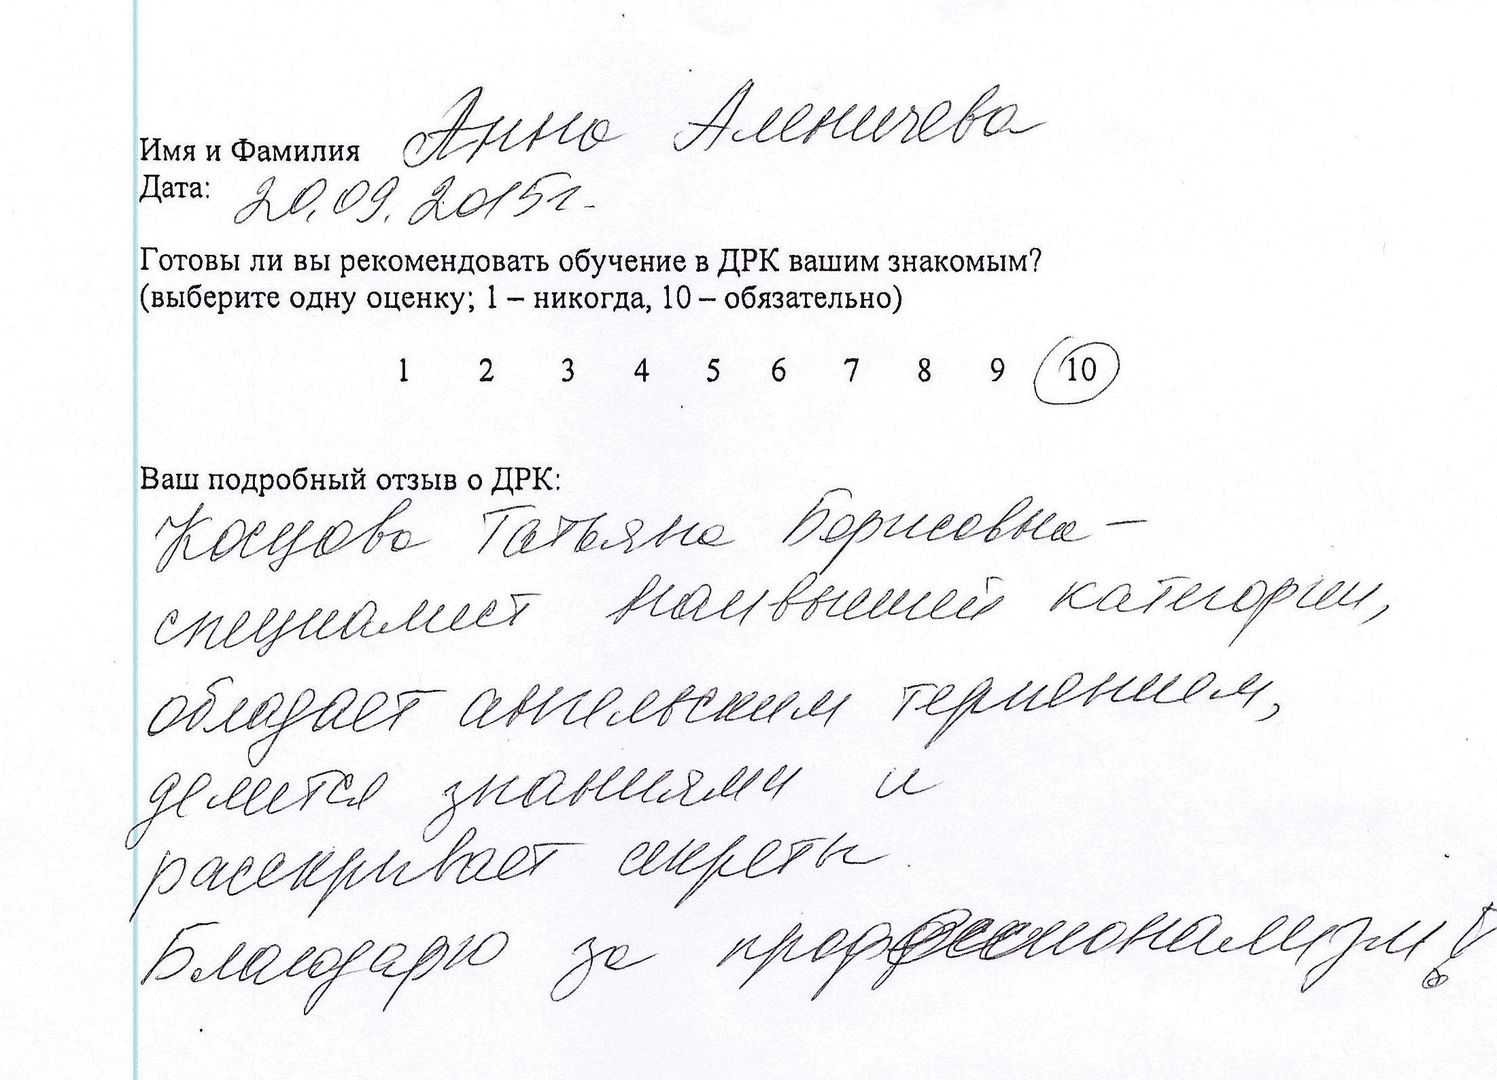 Имя и Фамилия Анна Аленичева
Дата: 20.09.2015г.
Готовы ли вы рекомендовать обучение в ДРК вашим знакомым?
(выберите одну оценку; 1 – никогда, 10 – обязательно)
1 2 3 4 5 6 7 8 9 10
Ваш подробный отзыв о ДРК:
Косцова Татьяна Борисовна –
специалист наивысшей категории,
обладает ангельским терпением,
делится знаниями и
рассекривает секреты
Благодарю за профессионализм!